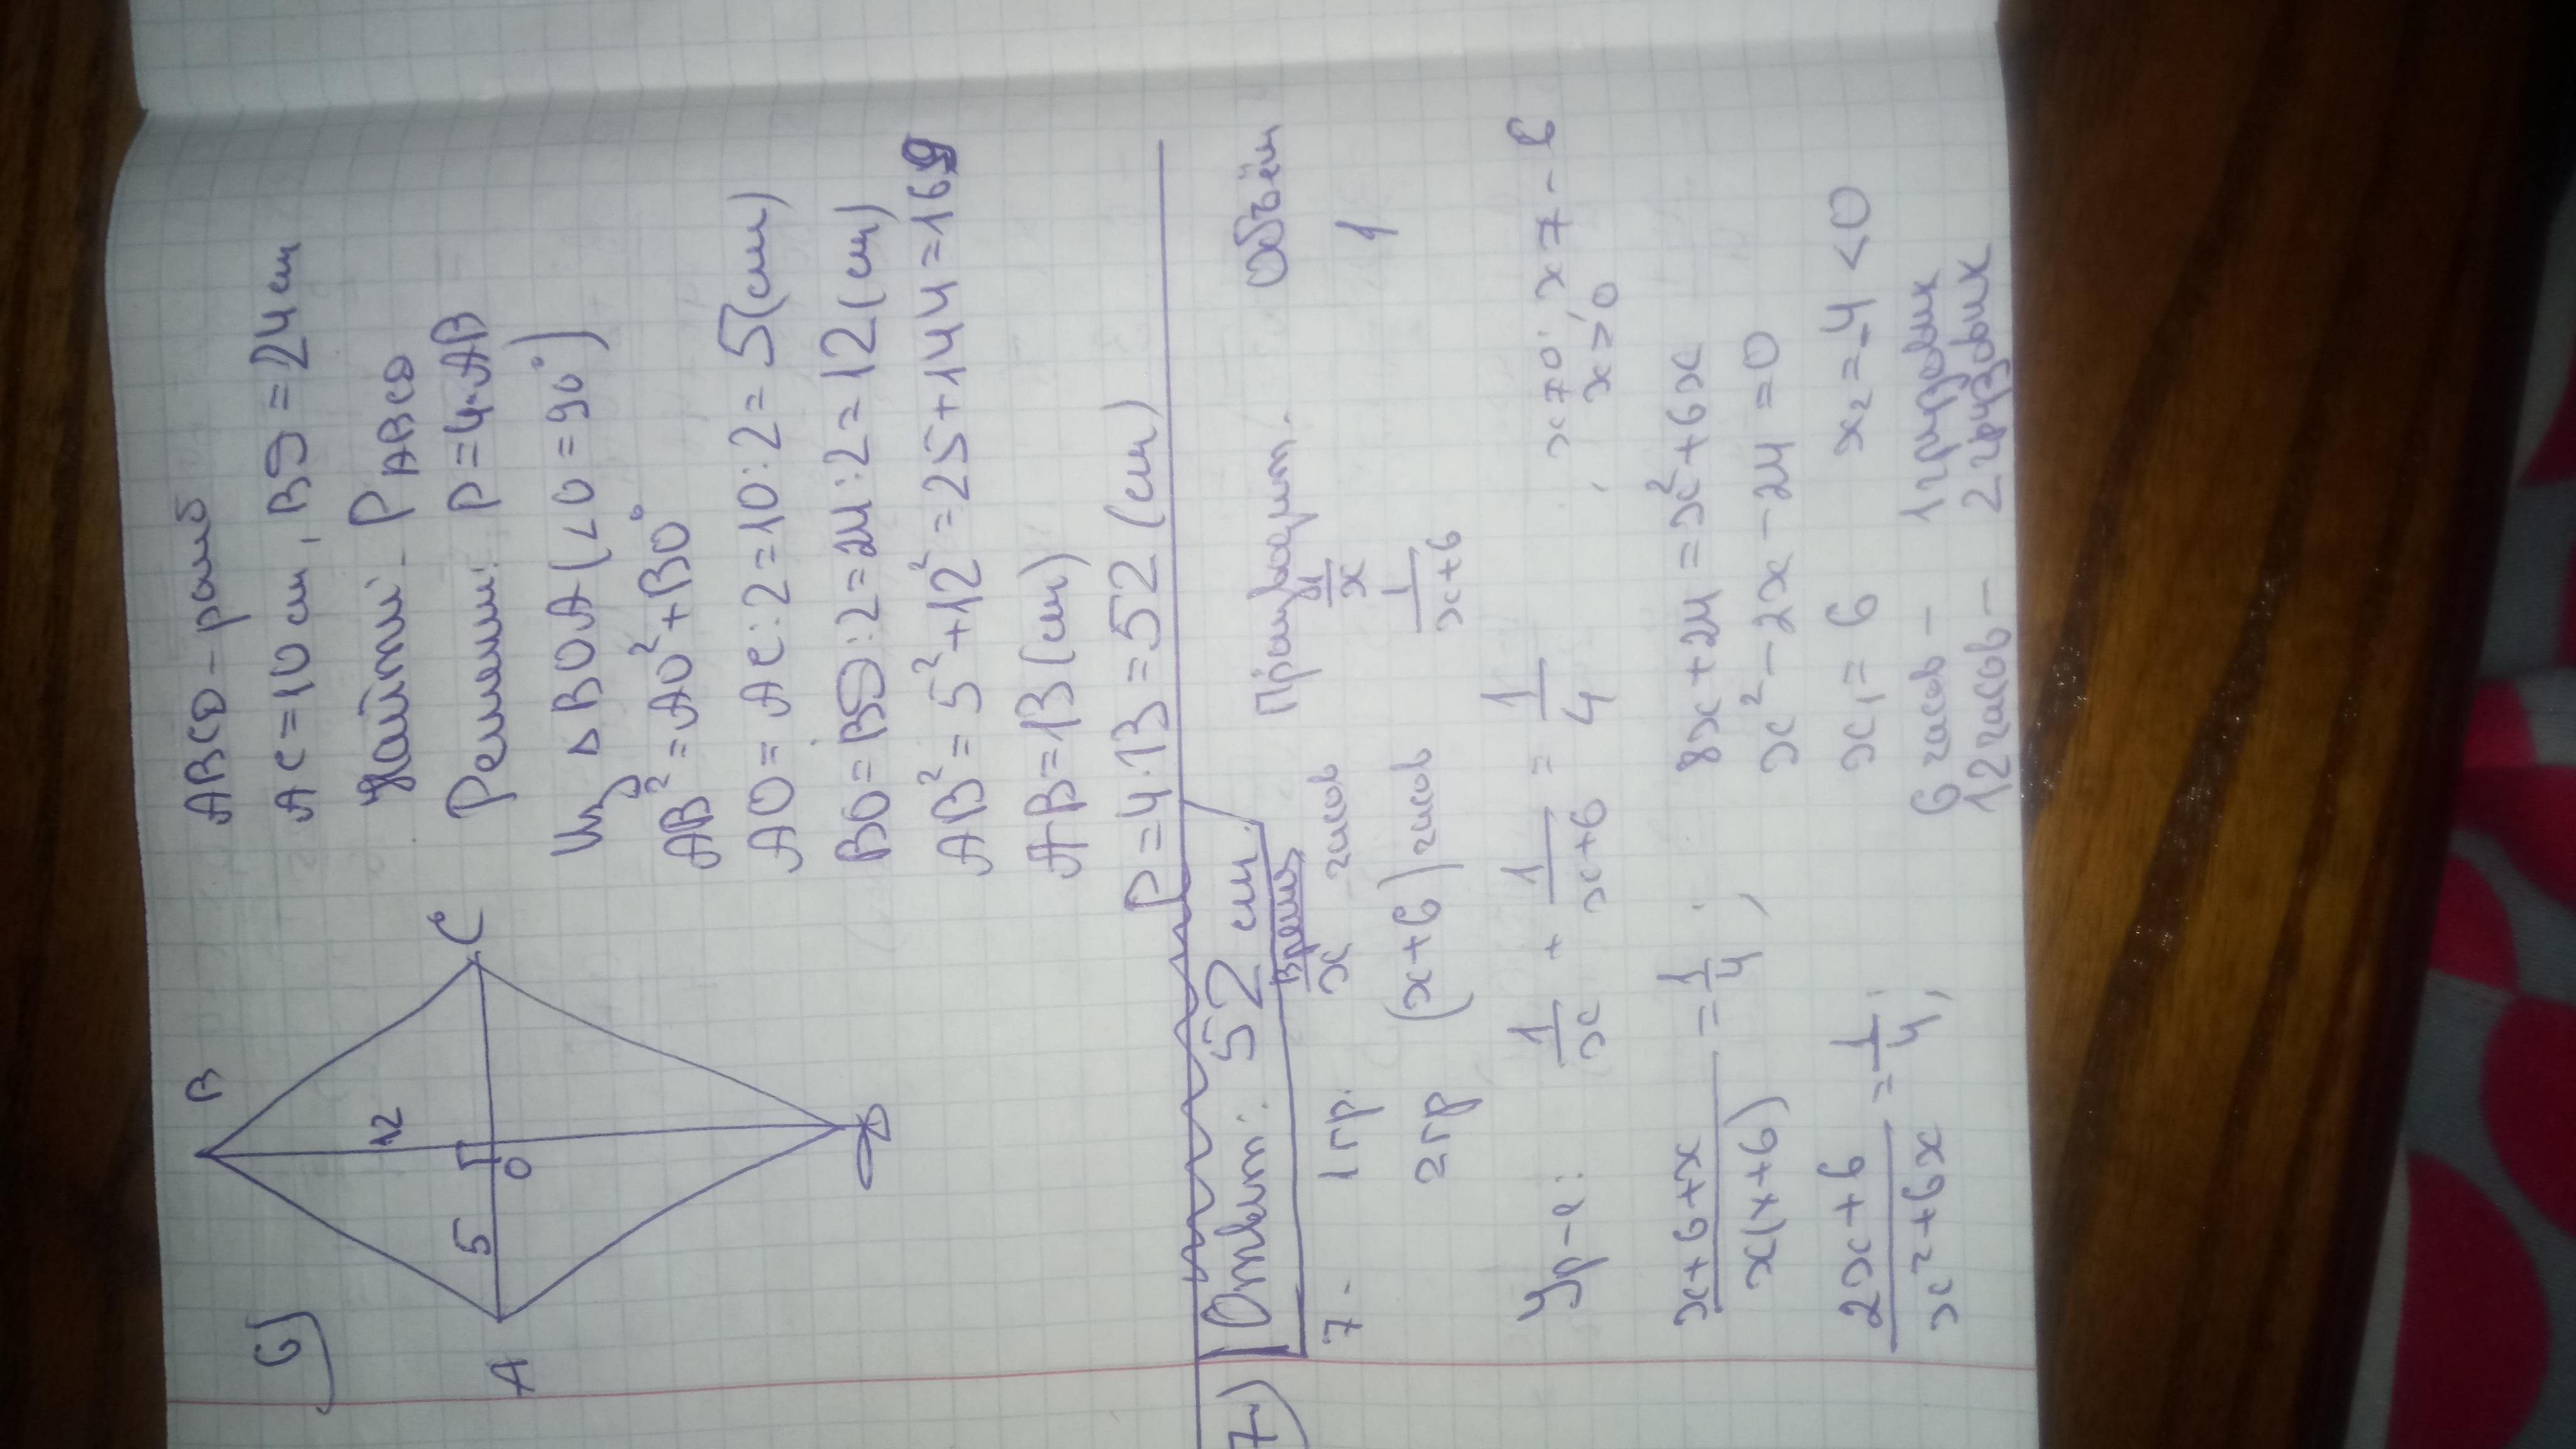 6)
B
12
A 5 O C
D
ABCD - ромб
AC = 10 см, BD = 24 см
Найти: P ABCD
Решени: P = 4·AB
Из △ BOA (∠O = 90°)
AB² = AO² + BO²
AO = AC : 2 = 10 : 2 = 5 (см)
BO = BD : 2 = 24 : 2 = 12 (см)
AB² = 5² + 12² = 25 + 144 = 169
AB = 13 (см)
P = 4·13 = 52 (см)
Ответ: 52 см.
7)
Время Производит. Объём
7- 1 гр. x часов 1/x 1
2 гр (x+6) часов 1/(x+6)
Ур-е: 1/x + 1/(x+6) = 1/4, x≠0; x≠-6
x>0
(x+6+x)/(x(x+6)) = 1/4; 8x+24 = x²+6x
(2x+6)/(x²+6x) = 1/4; x²-2x-24=0
x₁ = 6 x₂ = -4 < 0
6 часов - 1 грузовик
12 часов - 2 грузовик